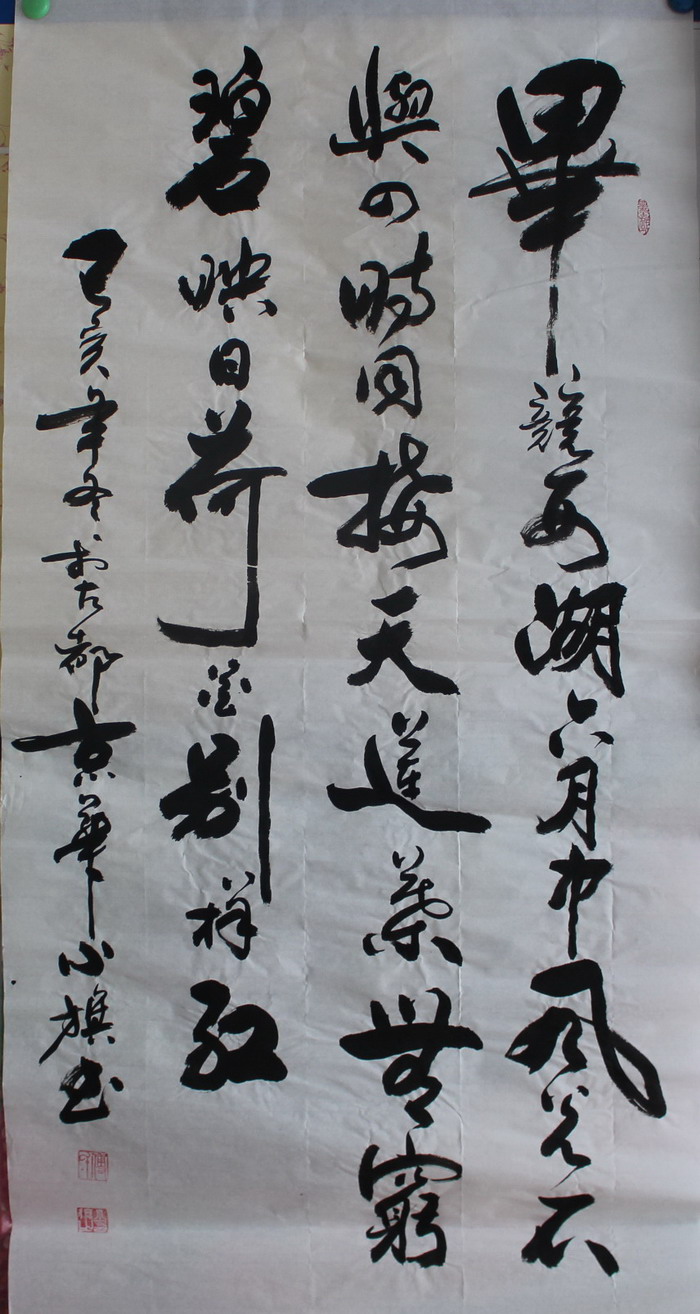 畢競西湖六月中風光不
與四時同接天蓮葉無窮
碧映日荷花別樣紅
己亥年冬於古都京華小旗书